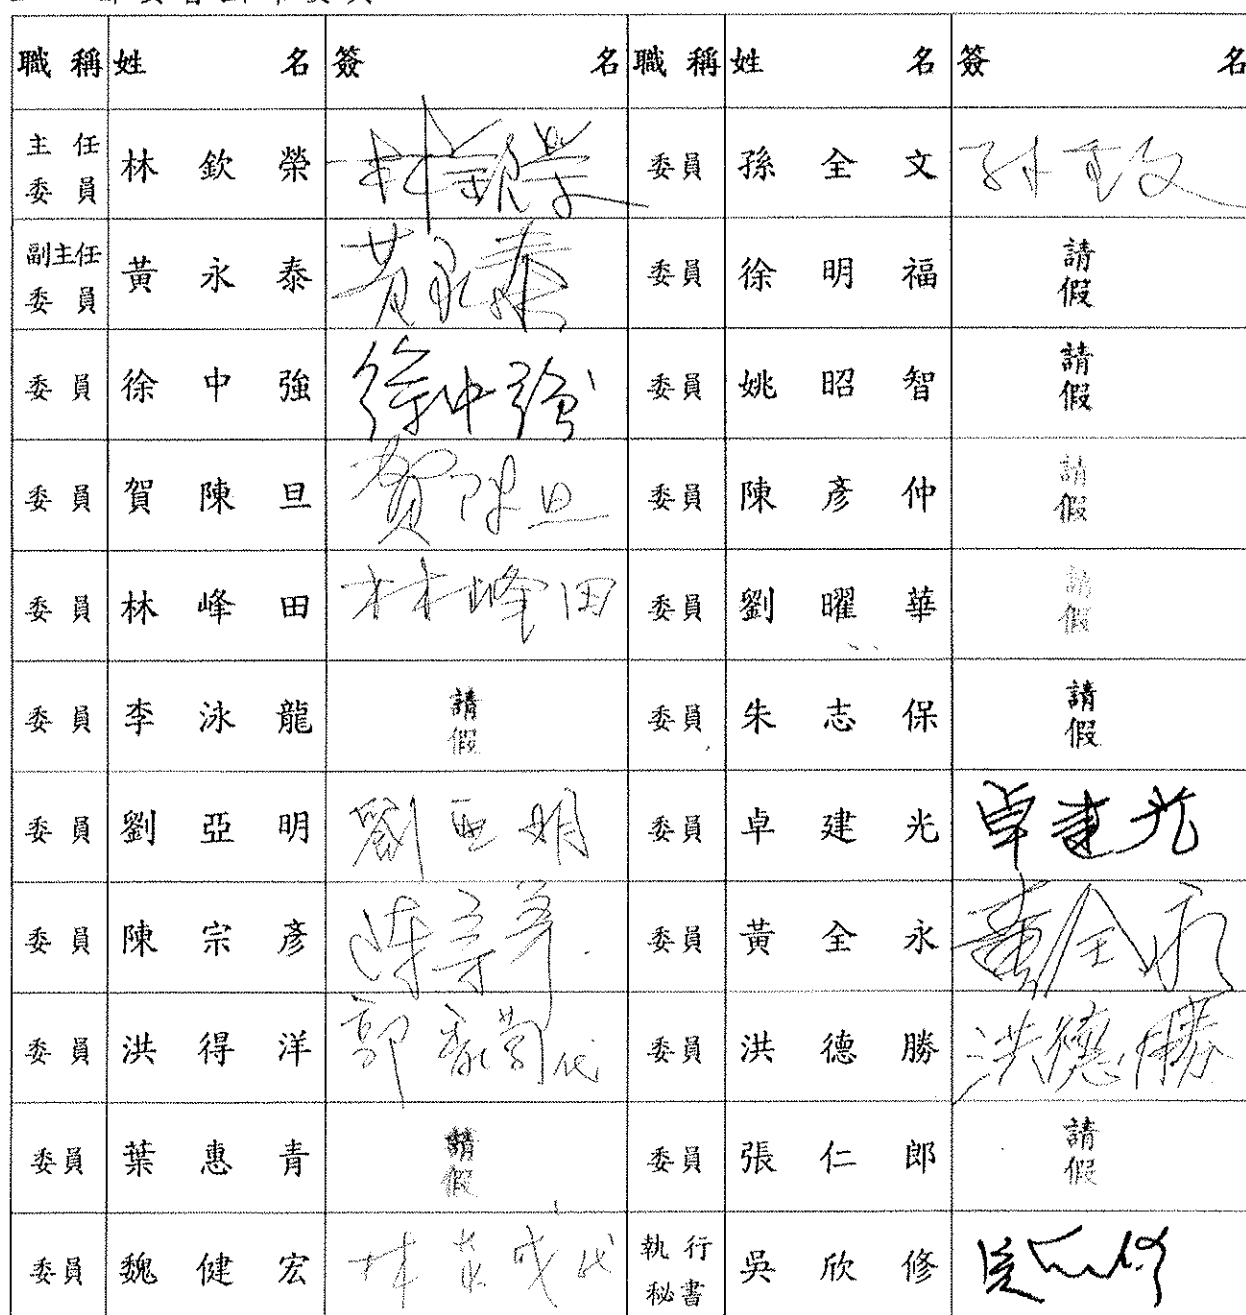 職稱 姓名 簽名 職稱 姓名 簽名
主任委員 林欽榮 林欽榮 委員 孫全文 孫全文
副主任委員 黃永泰 黃永泰 委員 徐明福 請假
委員 徐中強 徐中強 委員 姚昭智 請假
委員 賀陳旦 賀陳旦 委員 陳彥仲 請假
委員 林峰田 林峰田 委員 劉曜華 請假
委員 李泳龍 請假 委員 朱志保 請假
委員 劉亞明 劉亞明 委員 卓建光 卓建光
委員 陳宗彥 陳宗彥 委員 黃全永 黃全永
委員 洪得洋 郭 代 委員 洪德勝 洪德勝
委員 葉惠青 請假 委員 張仁郎 請假
委員 魏健宏 林 成代 執行秘書 吳欣修 吳欣修